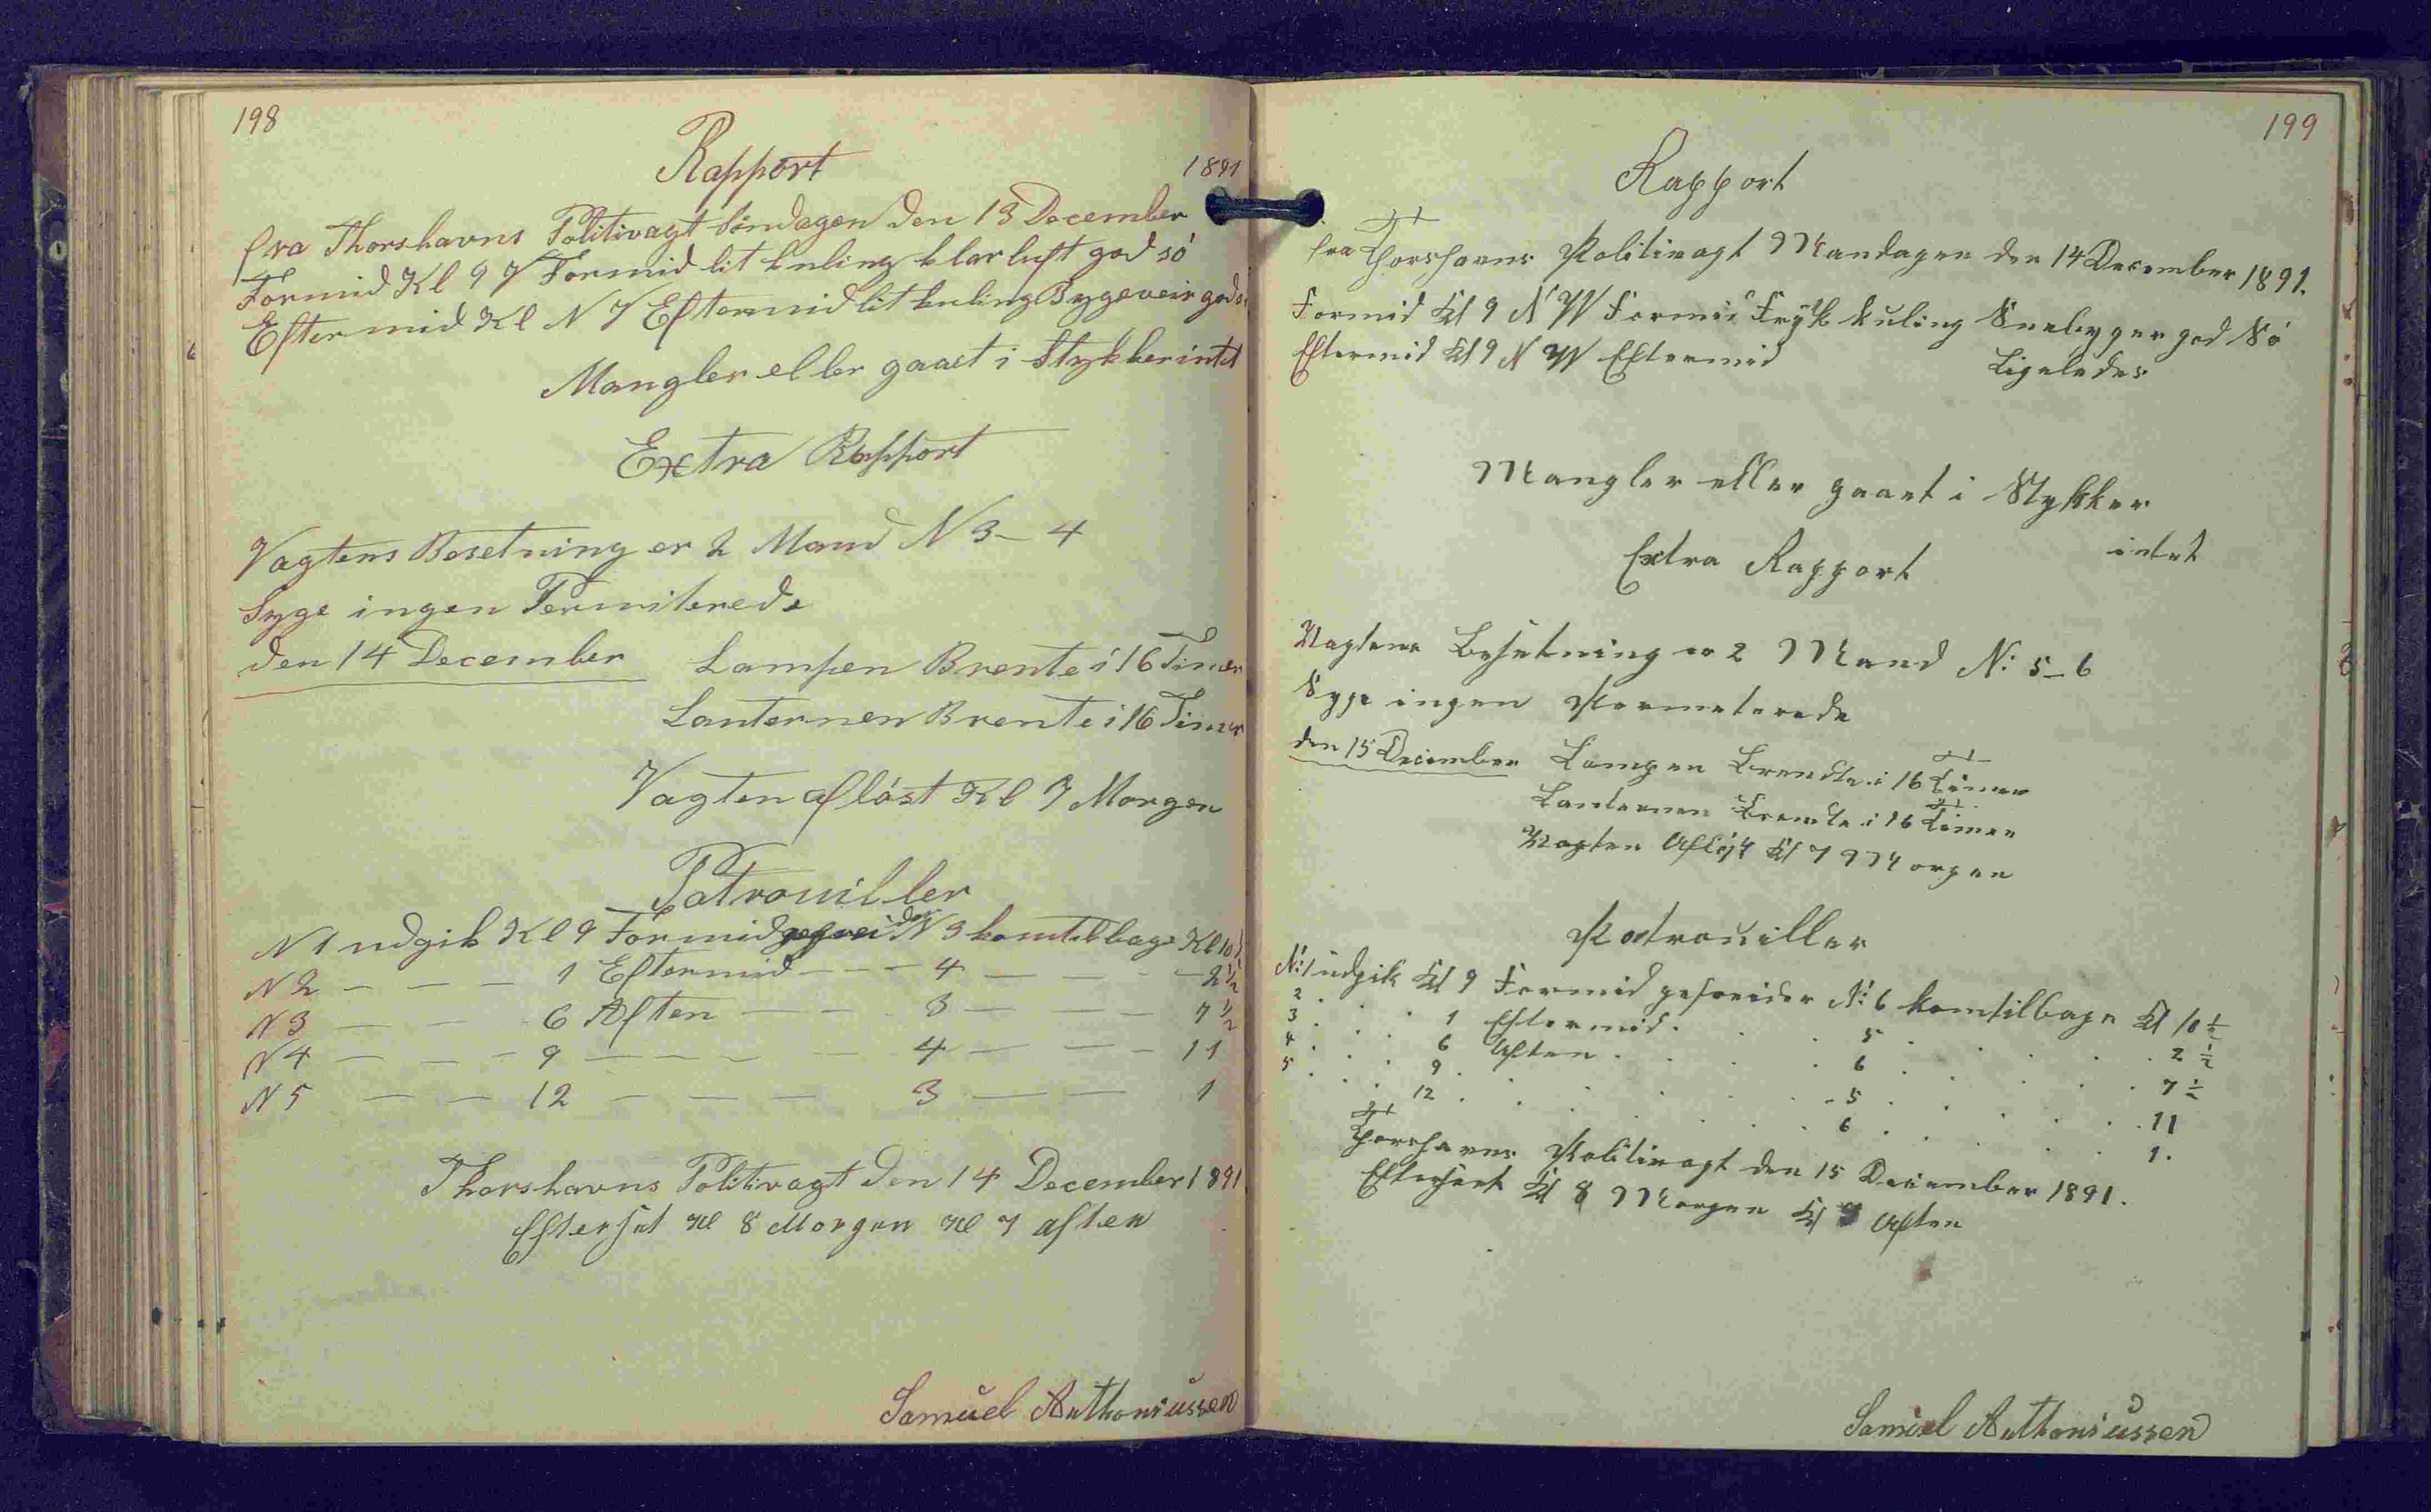 198
Rapport
1891
fra Thorshavns Politivagt Söndagen den 13 December
Formid Kl 9 V Formid lit kuling klar luft god só
Eftermid Kl N V Eftermid lit kuling Bygeveir god só
Mangler eller gaaet i Stykker intet
Extra Rapport
Vagtens Besetning er 2 Mand N 3 - 4
Syge ingen Permiterede
den 14 December Lampen Brente i 16 Timer
Lanternen Brente i 16 Timer
Vagten aflöst Kl 7 Morgen
Patrouiller
N 1 udgik Kl 9 Formid der N 3 kom tilbage Kl 10 ½
N 2 — — — 1 Eftermid - - - 4 — — - - 2 ½
N 3 — — - 6 Aften — - - 3 - — — 7 ½
N 4 — — - 9 — — - - 4 — — - 11
N 5 — — - 12 — — — 3 — — 1
Thorshavns Politivagt den 14 December 1891
Efterset Kl 8 Morgen Kl 7 aften
Samuel Anthoniussen
199
Rapport
fra Thorshavns Politivagt Mandagen den 14 December 1891.
Formid Kl 9 N W Formid Frysk kuling Snebyger god Só
Eftermid Kl 9 N W Eftermid Ligeledes
Mangler eller gaaet i Stykker
intet
Extra Rapport
Vagtens Besetning er 2 Mand N: 5 - 6
Syge ingen Permeterede
den 15 December Lampen Brendte i 16 Timer
Lanternen Brendte i 16 Timer
Vagten Aflöst Kl 7 Morgen
Patrouiller
N: 1 udgik Kl 9 Formid geforeider N: 6 kom tilbage Kl 10 ½
2 . . . 1 Eftermid . . . 5 . . . . 2 ½
3 . . . 6 Aften . . . 6 . . . . 7 ½
4 . . . 9 . . . . - 5 . . . . 11
5 . . . 12 . . . . . 6 . . . . 1.
Thorshavns Politivagt den 15 December 1891.
Efterset Kl 8 Morgen Kl 7 Aften
Samuel Anthoniussen